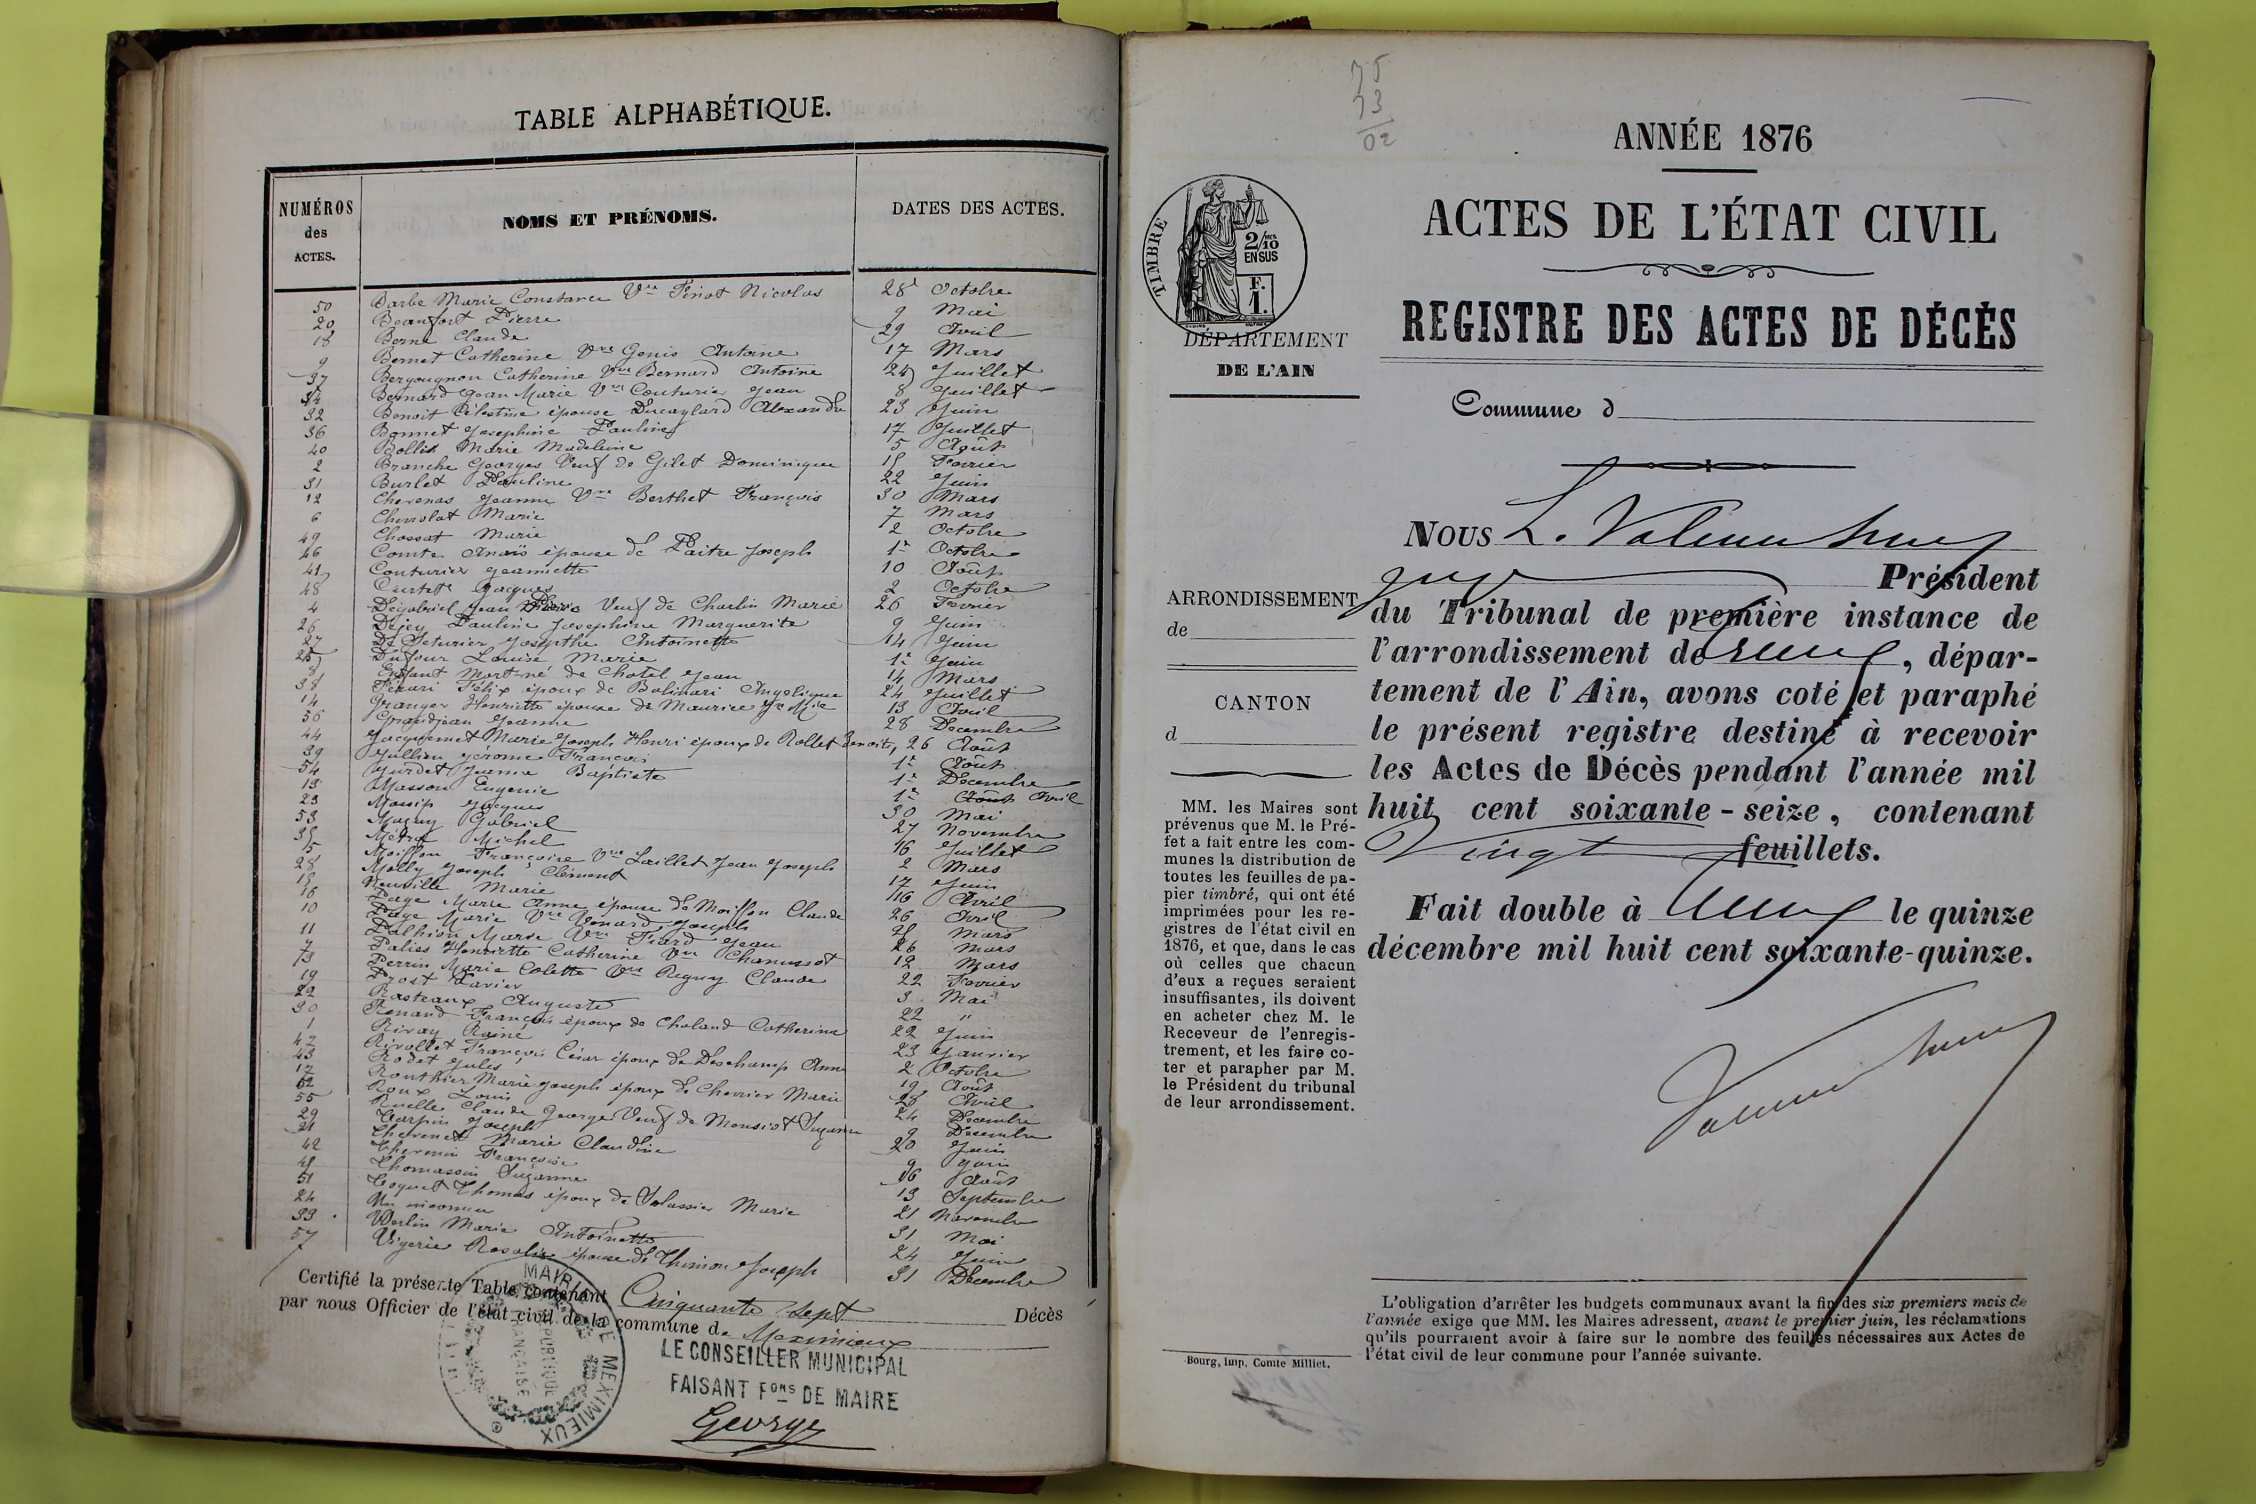 TABLE ALPHABÉTIQUE.
NUMÉROS des ACTES. NOMS ET PRÉNOMS. DATES DES ACTES.
50 Barbe Marie Constance Vve Pinot Nicolas 28 Octobre
20 Beaufort Pierre 9 Mai
18 Berne Claude 29 Avril
9 Bernet Catherine Vve Genis Antoine 17 Mars
37 Bergougnon Catherine Vve Bernard Antoine 24 Juillet
34 Bernard Jean Marie Vve Couturier Jean 8 Juillet
32 Benoit Célestine épouse Ducaylard Alexandre 23 Juin
36 Bonnet Josephine Pauline 17 Juillet
40 Bollié Marie Madeleine 5 Août
2 Branche Georges Veuf de Gilet Dominique 15 Fevrier
31 Burlet Pauline 22 Juin
12 Chevenas Jeanne Vve Berthet François 30 Mars
6 Chevolat Marie 7 Mars
49 Chossat Marie 2 Octobre
46 Comte Anaïs épouse de Paitre Joseph 1er Octobre
41 Couturier Jeannette 10 Août
48 Curtet Jacques 2 Octobre
4 Degabriel Jean Veuf de Charlin Marie 26 Fevrier
26 Dejey Pauline Josephine Marguerite 9 Juin
27 De Seturier Josepthe Antoinette 14 Juin
25 Dufour Louise Marie 1er Juin
8 Enfant Mort né de Chatel Jean 14 Mars
38 Félix époux de Balinari Angelique 24 Juillet
14 Granger Henriette épouse de Maurice 13 Avril
56 Grandjean Jeanne 28 Decembre
44 Jacquemet Marie Joseph Henri époux de Rollet Benoite, 26 Août
39 Jullien Jérome François 1er Août
54 Jurdet Jeanne Baptiste 1er Decembre
13 Masson Eugenie 1er Août Avril
23 Massip Jacques 30 Mai
53 Magny Gabriel 27 Novembre
35 Métra Michel 16 Juillet
5 Moiffon Françoise Vve Laillet Jean Joseph 2 Mars
28 Molly Joseph Clément 17 Juin
15 Neuville Marie 16 Avril
16 Page Marie Anne épouse de Moiffon Claude 26 Avril
10 Page Marie Vve Renard Joseph Mars
11 Palhion Marie Vve Picard Jean 26 Mars
7 Palies Henriette Catherine Vve Chanussot 12 Mars
Perrin Marie Colette Vve Reguy Claude 22 Fevrier
19 Prost Xavier 3 Mai
22 Rasteaux Auguste 22 "
30 Renand François époux de Chaland Catherine 22 Juin
1 Rivay Rainé 23 Janvier
47 Rivollet François César époux de Deschamp Anne 2 Octobre
43 Rodet Jules 19 Août
17 Ronthier Marie Joseph époux de Chevrier Marie 28 Avril
Roux Louis 24 Decembre
55 Ruelle Claude George Veuf de Monsiot Suzanne 9 Decembre
29 Tarpin Joseph 20 Juin
21 Thevenet Marie Claudine 9 Juin
42 Thevenin Françoise 16 Août
45 Thomassin Suzanne 13 Septembre
51 Toquet Thomas époux de Solassier Marie 21 Novembre
24 Un inconnu 31 Mai
33 Verlin Marie Antoinette 24 Juin
57 Vigerie Rosalie épouse de Thimon Joseph 31 Decembre
Certifié la présente Table, contenant Cinquante sept Décès
par nous Officier de l'état civil de la commune de Meximieux
MAIRIE DE MEXIMIEUX
RÉPUBLIQUE FRANÇAISE
LE CONSEILLER MUNICIPAL
FAISANT Fons DE MAIRE
George
75
73
02
ANNÉE 1876
ACTES DE L'ÉTAT CIVIL
REGISTRE DES ACTES DE DÉCÈS
Commune d
TIMBRE
2/10 EN SUS
F. 1.
DÉPARTEMENT
DE L'AIN
ARRONDISSEMENT
de
CANTON
d
MM. les Maires sont
prévenus que M. le Pré-
fet a fait entre les com-
munes la distribution de
toutes les feuilles de pa-
pier timbré, qui ont été
imprimées pour les re-
gistres de l'état civil en
1876, et que, dans le cas
où celles que chacun
d'eux a reçues seraient
insuffisantes, ils doivent
en acheter chez M. le
Receveur de l'enregis-
trement, et les faire co-
ter et parapher par M.
le Président du tribunal
de leur arrondissement.
Bourg, Imp. Comte Milliet.
NOUS L.
juge Président
du Tribunal de première instance de
l'arrondissement de , dépar-
tement de l'Ain, avons coté et paraphé
le présent registre destiné à recevoir
les Actes de Décès pendant l'année mil
huit cent soixante-seize, contenant
Vingt feuillets.
Fait double à le quinze
décembre mil huit cent soixante-quinze.
L'obligation d'arrêter les budgets communaux avant la fin des six premiers mois de
l'année exige que MM. les Maires adressent, avant le premier juin, les réclamations
qu'ils pourraient avoir à faire sur le nombre des feuilles nécessaires aux Actes de
l'état civil de leur commune pour l'année suivante.